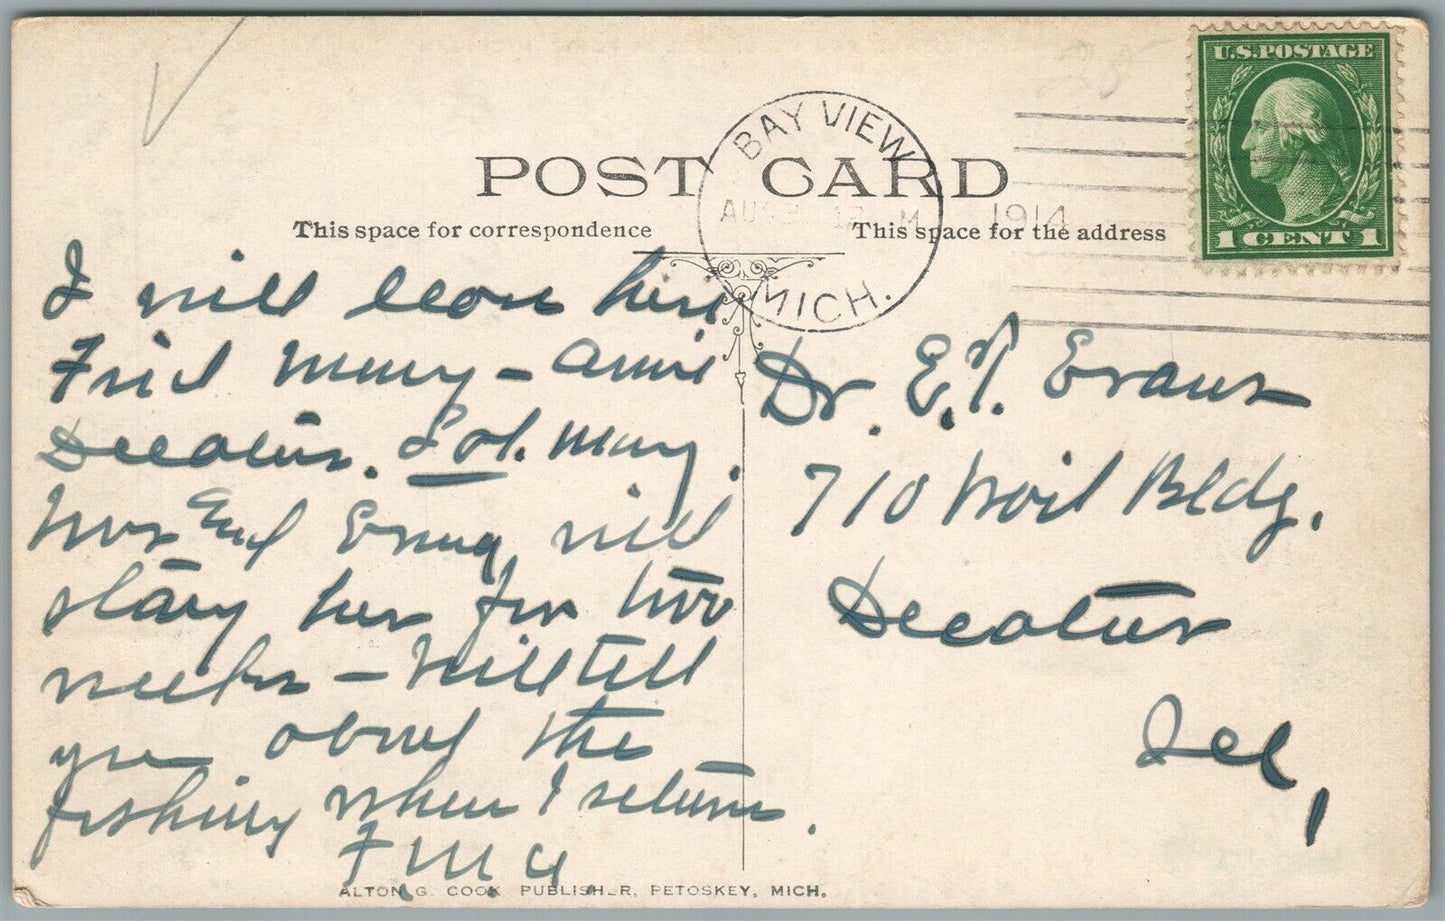 POST CARD
This space for correspondence
This space for the address
BAY VIEW
MICH.
AUG 12 M 1914
U.S. POSTAGE
1 CENT 1
I will leave here
Frid Morning – arrive
Decatur. Sat. Morng.
Mrs Earl Evans will
stay here for two
weeks – Will tell
you about the
fishing when I return.
Dr. E. J. Evans
710 Bldg.
Decatur
Ill,
ALTON G. COOK PUBLISHER, PETOSKEY, MICH.